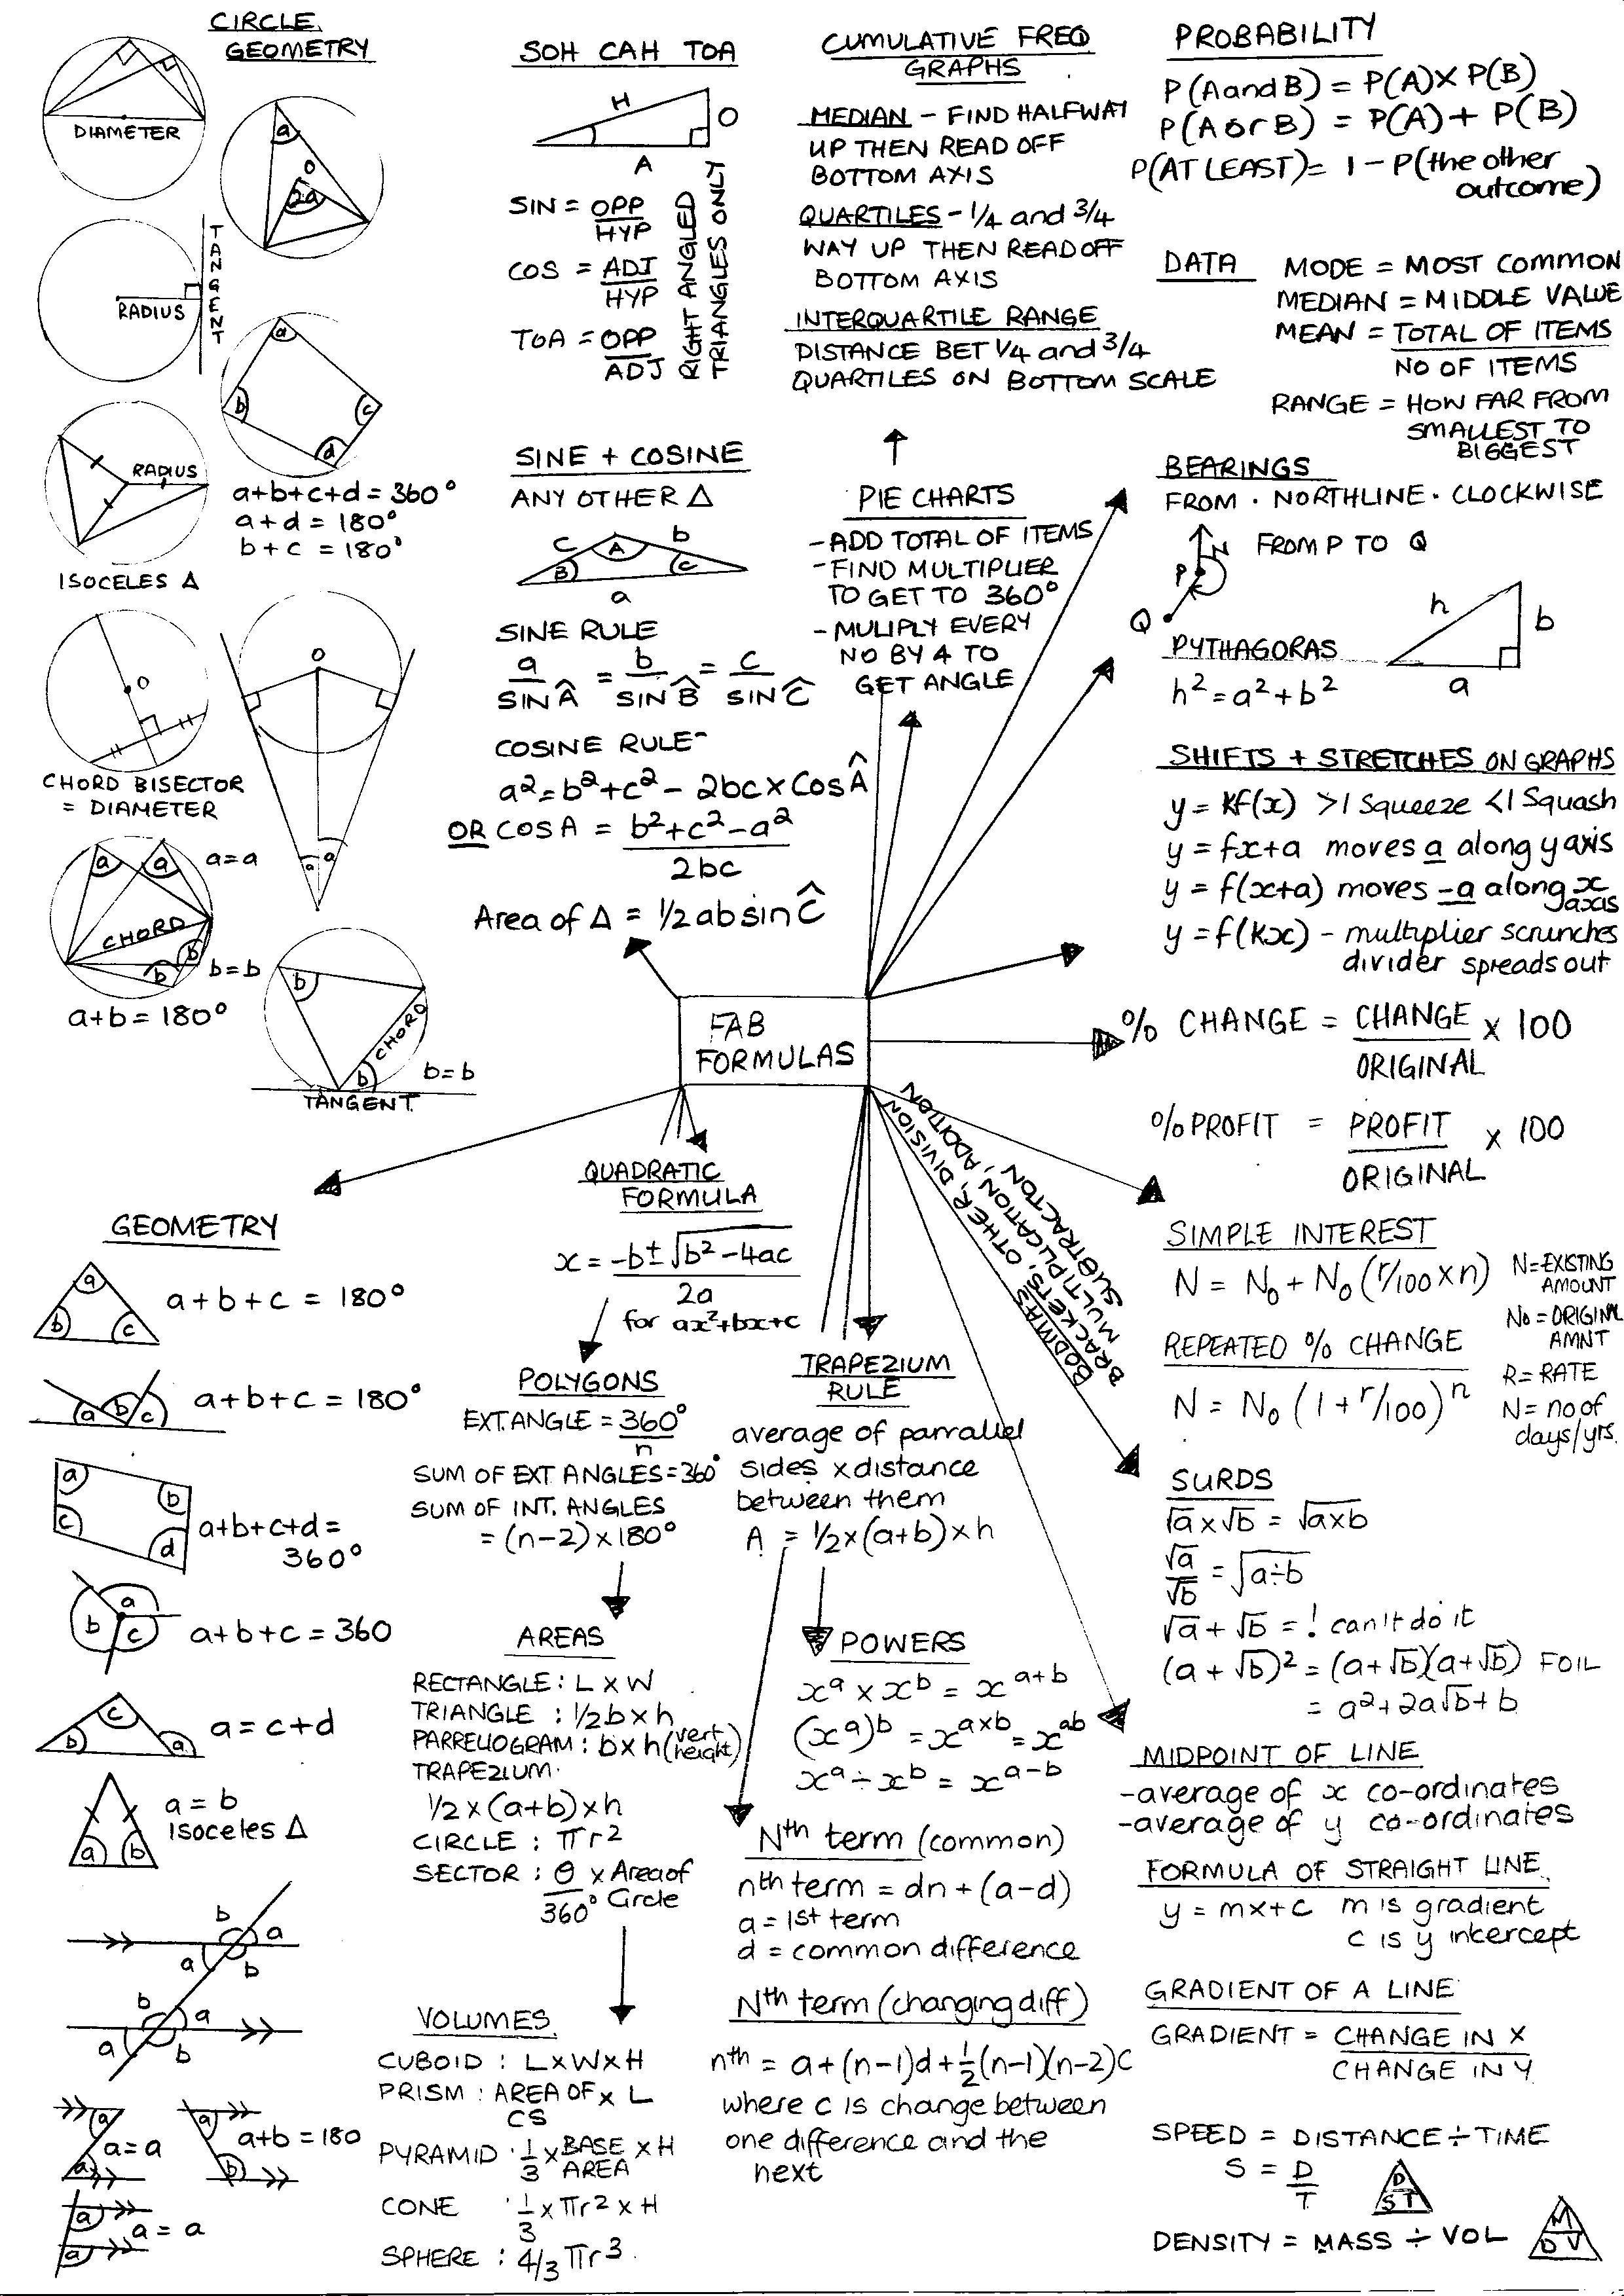 CIRCLE
GEOMETRY
DIAMETER
a
O
2a
TANGENT
RADIUS
a
b
c
d
a+b+c+d=360°
a+d=180°
b+c=180°
RADIUS
ISOCELES Δ
O
CHORD BISECTOR
= DIAMETER
O
a
a
a
a
a=a
CHORD
b
b
b=b
a+b=180°
b
CHORD
b
b=b
TANGENT
SOH CAH TOA
H
O
A
SIN = OPP
HYP
COS = ADJ
HYP
TOA = OPP
ADJ
RIGHT ANGLED
TRIANGLES ONLY
SINE + COSINE
ANY OTHER Δ
c
A
b
B
C
a
SINE RULE
a = b = c
SIN Â SIN B̂ SIN Ĉ
COSINE RULE-
a²=b²+c²- 2bc x Cos Â
OR COS A = b²+c²-a²
2bc
Area of Δ = 1/2 ab sin Ĉ
CUMULATIVE FREQ
GRAPHS
MEDIAN - FIND HALFWAY
UP THEN READ OFF
BOTTOM AXIS
QUARTILES - 1/4 and 3/4
WAY UP THEN READ OFF
BOTTOM AXIS
INTERQUARTILE RANGE
DISTANCE BET 1/4 and 3/4
QUARTILES ON BOTTOM SCALE
PIE CHARTS
-ADD TOTAL OF ITEMS
-FIND MULTIPLIER
TO GET TO 360°
- MULIPLY EVERY
NO BY 4 TO
GET ANGLE
PROBABILITY
P(A and B) = P(A) x P(B)
P(A or B) = P(A) + P(B)
P(AT LEAST) = 1 - P(the other
outcome)
DATA MODE = MOST COMMON
MEDIAN = MIDDLE VALUE
MEAN = TOTAL OF ITEMS
NO OF ITEMS
RANGE = HOW FAR FROM
SMALLEST TO
BIGGEST
BEARINGS
FROM · NORTHLINE · CLOCKWISE
N
FROM P TO Q
P
Q
PYTHAGORAS
h
b
a
h²=a²+b²
SHIFTS + STRETCHES ON GRAPHS
y = Kf(x) >1 Squeeze <1 Squash
y = fx+a moves a along y axis
y = f(x+a) moves -a along x
axis
y = f(Kx) - multiplier scrunches
divider spreads out
FAB
FORMULAS
% CHANGE = CHANGE x 100
ORIGINAL
% PROFIT = PROFIT x 100
ORIGINAL
SIMPLE INTEREST
N = N₀ + N₀ (r/100 x n)
N=EXISTING
AMOUNT
No = ORIGINL
AMNT
REPEATED % CHANGE
R = RATE
N = N₀ (1 + r/100)ⁿ
N = no of
days/yrs.
BODMAS
BRACKETS, OTHER, DIVISION
MULTIPLICATION, ADDITION
SUBTRACTON
SURDS
√a x √b = √axb
√a = √a÷b
√b
√a + √b = ! can't do it
(a + √b)² = (a+√b)(a+√b) FOIL
= a²+2a√b+b
MIDPOINT OF LINE
-average of x co-ordinates
-average of y co-ordinates
FORMULA OF STRAIGHT LINE
y = mx+c m is gradient
c is y intercept
GRADIENT OF A LINE
GRADIENT = CHANGE IN X
CHANGE IN Y
SPEED = DISTANCE ÷ TIME
S = D
T
D
S T
DENSITY = MASS ÷ VOL
M
D V
QUADRATIC
FORMULA
x = -b ± √b²-4ac
2a
for ax²+bx+c
POLYGONS
EXT.ANGLE = 360°
n
SUM OF EXT ANGLES=360°
SUM OF INT. ANGLES
= (n-2) x 180°
AREAS
RECTANGLE : L X W
TRIANGLE : 1/2 b x h
PARRELLOGRAM : b x h (vert
height)
TRAPEZIUM
1/2 x (a+b) x h
CIRCLE : πr²
SECTOR : θ x Area of
360° Circle
VOLUMES
CUBOID : L x W x H
PRISM : AREA OF x L
CS
PYRAMID 1/3 x BASE x H
AREA
CONE 1/3 x πr² x H
SPHERE : 4/3 πr³
TRAPEZIUM
RULE
average of parrallel
sides x distance
between them
A = 1/2 x (a+b) x h
POWERS
xᵃ x xᵇ = xᵃ⁺ᵇ
(xᵃ)ᵇ = xᵃˣᵇ = xᵃᵇ
xᵃ ÷ xᵇ = xᵃ⁻ᵇ
Nth term (common)
nth term = dn + (a-d)
a = 1st term
d = common difference
Nth term (changing diff)
nth = a+(n-1)d+1/2(n-1)(n-2)C
where c is change between
one difference and the
next
GEOMETRY
a
b
c
a + b + c = 180°
a
b
c
a + b + c = 180°
a
b
c
d
a+b+c+d =
360°
a
b
c
a+b+c = 360
c
b
a
a = c+d
a = b
Isoceles Δ
a
b
b
a
a
b
b
a
a
b
a
a
a=a
a
b
a+b = 180
a
a
a = a